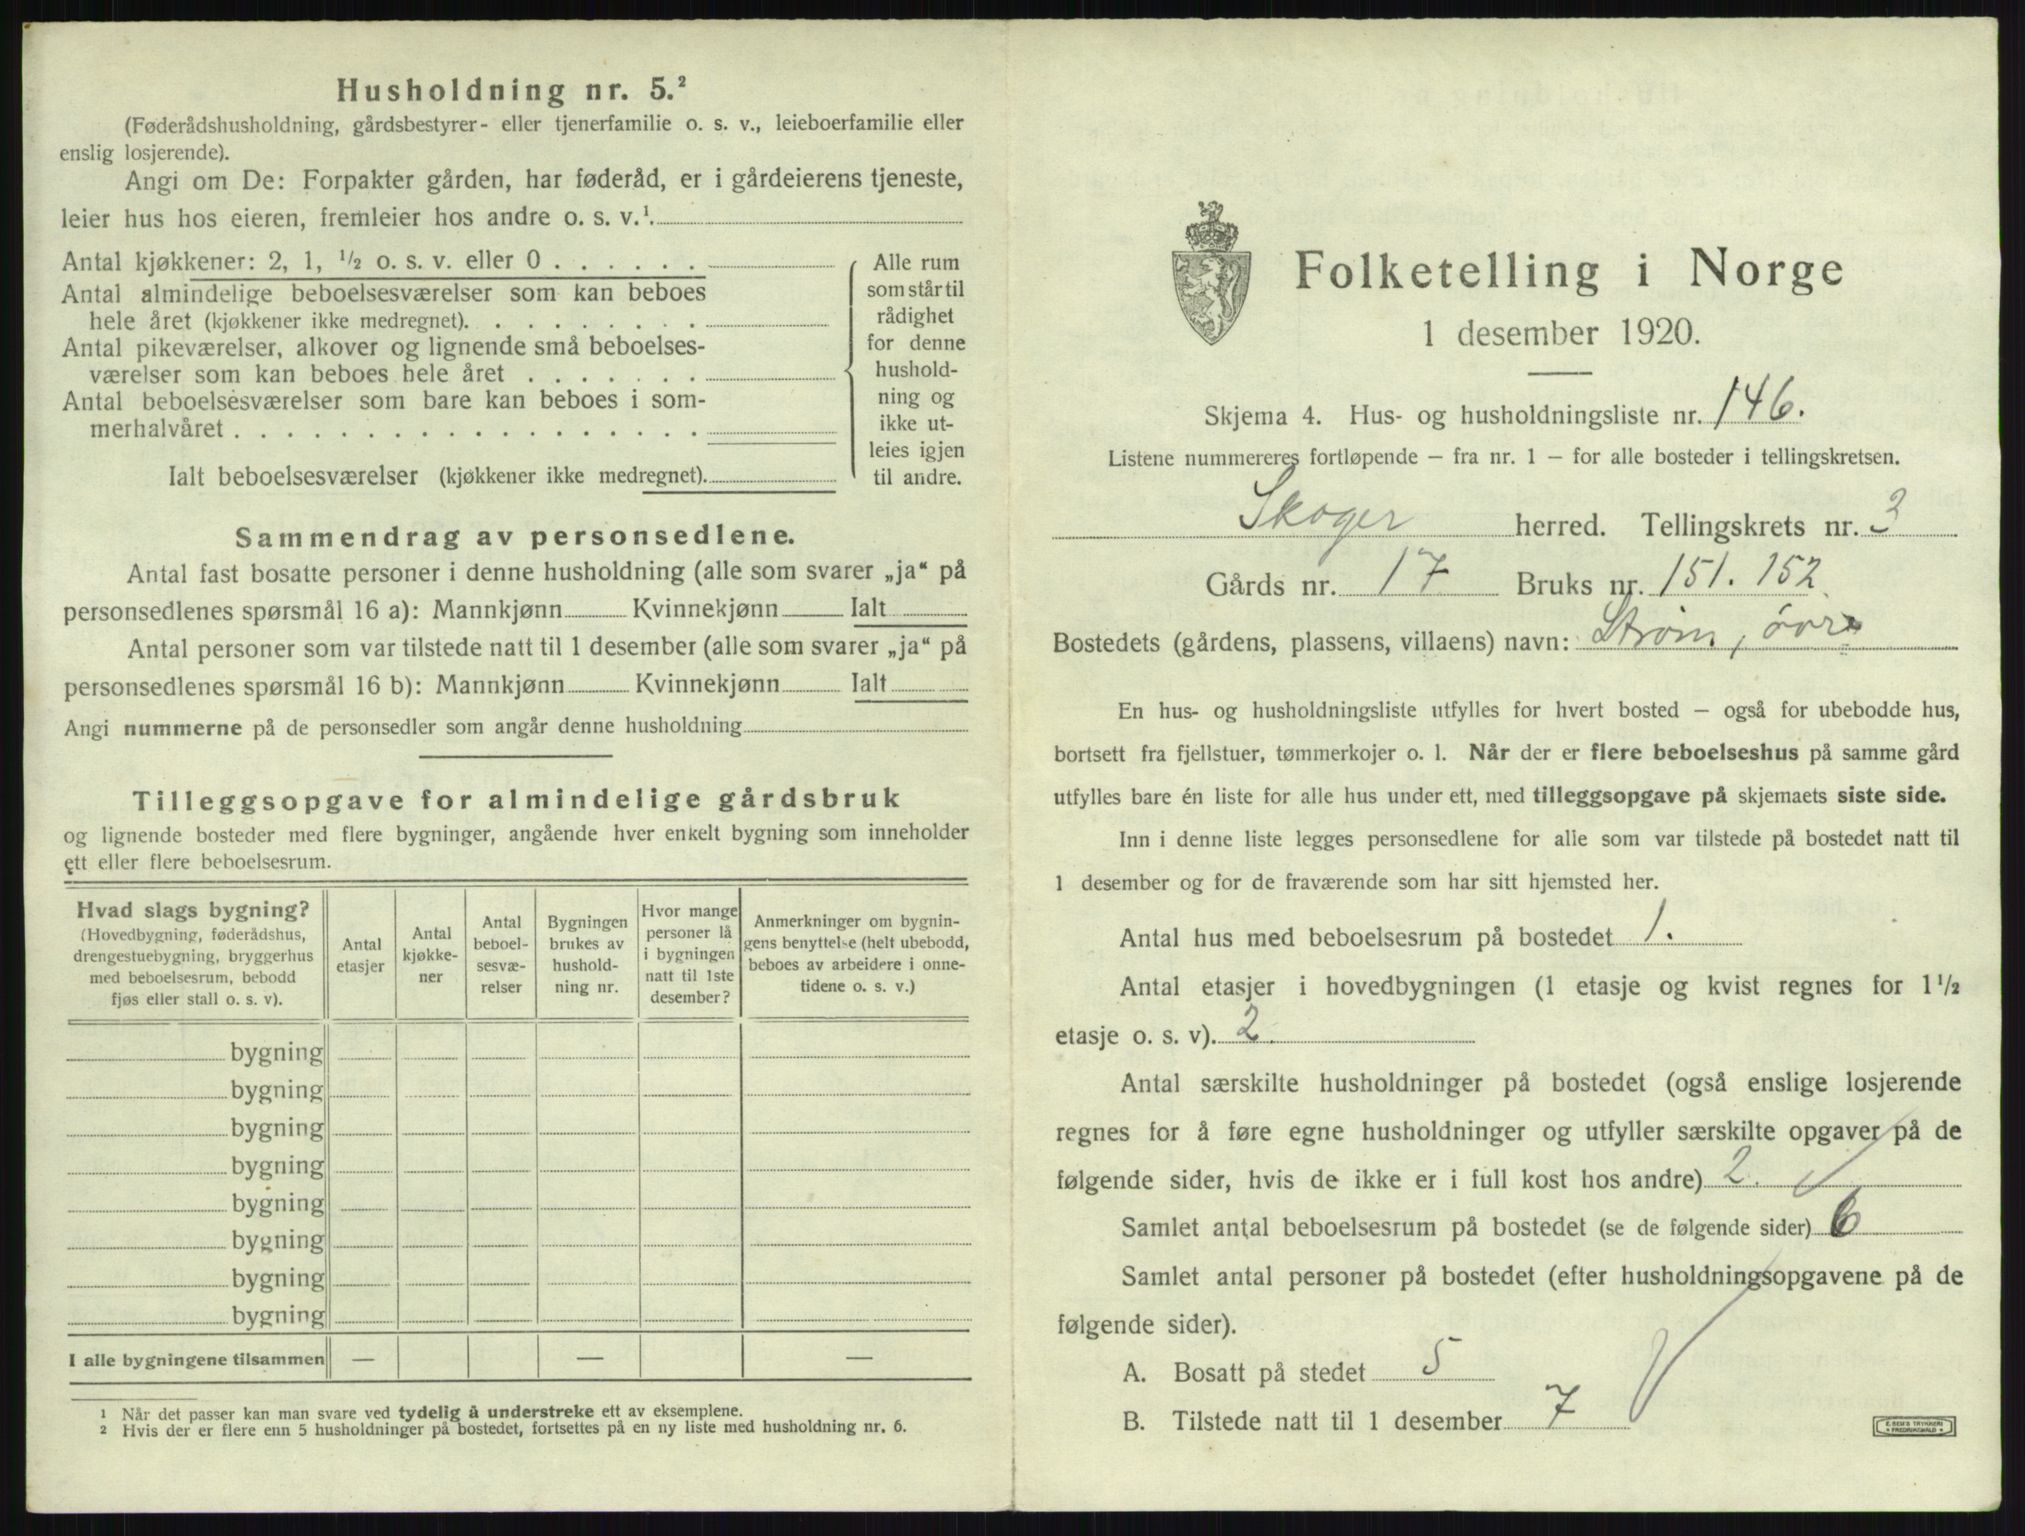 Husholdning nr. 5.²
(Føderådshusholdning, gårdsbestyrer- eller tjenerfamilie o. s. v., leieboerfamilie eller
enslig losjerende).
Angi om De: Forpakter gården, har føderåd, er i gårdeierens tjeneste,
leier hus hos eieren, fremleier hos andre o. s. v.¹.
Antal kjøkkener: 2, 1, ½ o. s. v. eller 0 . . . . . .
Antal almindelige beboelsesværelser som kan beboes
hele året (kjøkkener ikke medregnet). . . . . . . . .
Antal pikeværelser, alkover og lignende små beboelses-
værelser som kan beboes hele året . . . . . . .
Antal beboelsesværelser som bare kan beboes i som-
merhalvåret . . . . . . . . . . . . . . . . . .
Ialt beboelsesværelser (kjøkkener ikke medregnet).
Alle rum
som står til
rådighet
for denne
hushold-
ning og
ikke ut-
leies igjen
til andre.
Sammendrag av personsedlene.
Antal fast bosatte personer i denne husholdning (alle som svarer „ja“ på
personsedlenes spørsmål 16 a): Mannkjønn Kvinnekjønn Ialt
Antal personer som var tilstede natt til 1 desember (alle som svarer „ja“ på
personsedlenes spørsmål 16 b): Mannkjønn Kvinnekjønn Ialt
Angi nummerne på de personsedler som angår denne husholdning
Tilleggsopgave for almindelige gårdsbruk
og lignende bosteder med flere bygninger, angående hver enkelt bygning som inneholder
ett eller flere beboelsesrum.
Hvad slags bygning?
(Hovedbygning, føderådshus,
drengestuebygning, bryggerhus
med beboelsesrum, bebodd
fjøs eller stall o. s. v).
Antal
etasjer
Antal
kjøkke-
ner
Antal
beboel-
sesvæ-
relser
Bygningen
brukes av
hushold-
ning nr.
Hvor mange
personer lå
i bygningen
natt til 1ste
desember?
Anmerkninger om bygnin-
gens benyttelse (helt ubebodd,
beboes av arbeidere i onne-
tidene o. s. v.)
bygning
bygning
bygning
bygning
bygning
bygning
bygning
bygning
I alle bygningene tilsammen — — —
1 Når det passer kan man svare ved tydelig å understreke ett av eksemplene.
2 Hvis der er flere enn 5 husholdninger på bostedet, fortsettes på en ny liste med husholdning nr. 6.
Folketelling i Norge
1 desember 1920.
Skjema 4. Hus- og husholdningsliste nr. 146.
Listene nummereres fortløpende – fra nr. 1 – for alle bosteder i tellingskretsen.
Skoger herred. Tellingskrets nr. 3
Gårds nr. 17 Bruks nr. 151. 152.
Bostedets (gårdens, plassens, villaens) navn: Strøm, øvre
En hus- og husholdningsliste utfylles for hvert bosted – også for ubebodde hus,
bortsett fra fjellstuer, tømmerkojer o. l. Når der er flere beboelseshus på samme gård
utfylles bare én liste for alle hus under ett, med tilleggsopgave på skjemaets siste side.
Inn i denne liste legges personsedlene for alle som var tilstede på bostedet natt til
1 desember og for de fraværende som har sitt hjemsted her.
Antal hus med beboelsesrum på bostedet 1.
Antal etasjer i hovedbygningen (1 etasje og kvist regnes for 1½
etasje o. s. v). 2.
Antal særskilte husholdninger på bostedet (også enslige losjerende
regnes for å føre egne husholdninger og utfyller særskilte opgaver på de
følgende sider, hvis de ikke er i full kost hos andre) 2.
Samlet antal beboelsesrum på bostedet (se de følgende sider) 6
Samlet antal personer på bostedet (efter husholdningsopgavene på de
følgende sider).
A. Bosatt på stedet 5
B. Tilstede natt til 1 desember 7
E. SEM'S TRYKKERI
FREDRIKSHALD